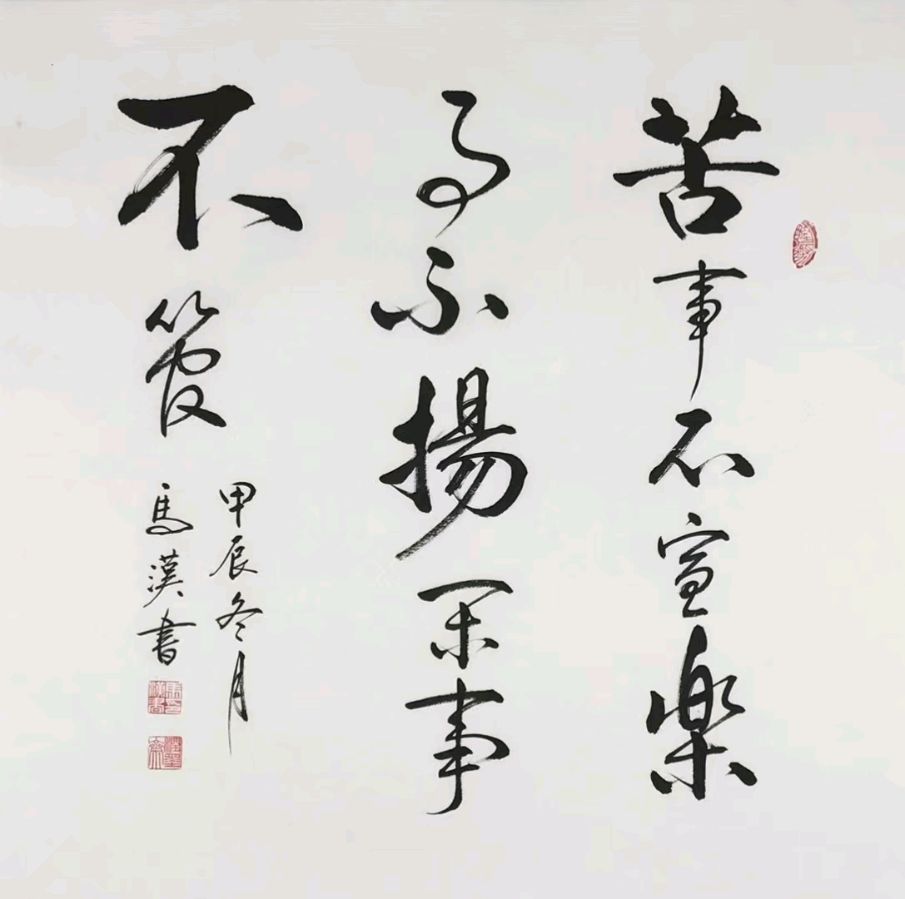 苦事不宣樂
事不揚閑事
不管
甲辰冬月
馬漢書